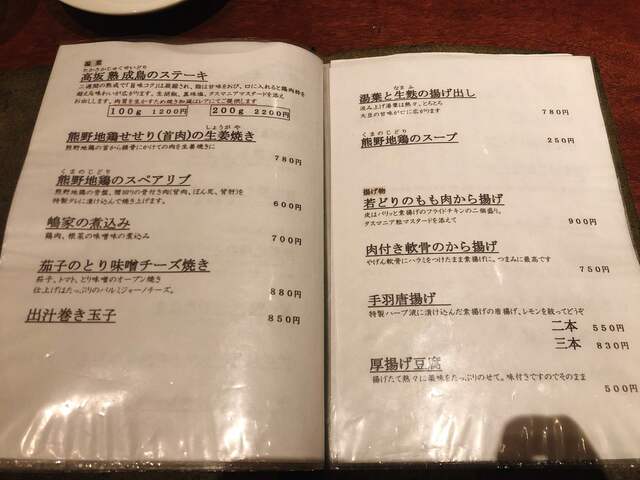 温菜
たかさかじゅくせいどり
高坂熟成鳥のステーキ
二週間の熟成で「旨味コク」は凝縮され、脂は甘味をおび、口に入れると鶏肉特を
超える味わいが広がります。生胡椒、藻味塩、タスマニアマスタードを添え
お出しします。肉質を生かすため焼き加減はレアにてご提供します
100g 1200円 200g 2200円
しょうが や
熊野地鶏せせり(首肉)の生姜焼き
熊野地鶏の首から膳骨にかけての肉を生姜焼きに
780円
くまのじどり
熊野地鶏のスペアリブ
特製タレに漬け込んで焼き上げます。
600円
嶋家の煮込み
鶏肉、根菜の味噌味の煮込み
700円
茄子のとり味噌チーズ焼き
茄子、トマト、とり味噌のオーブン焼き
仕上げはたっぷりのパルミジャーノチーズ。
880円
出汁巻き玉子
850円
なまふ
湯葉と生麩の揚げ出し
汲み上げ湯葉は熱々、とろとろ
大豆の甘味が口に広がります
780円
くまのじどり
熊野地鶏のスープ
250円
揚げ物
若どりのもも肉から揚げ
皮はパリッと素揚げのフライドチキンの二個盛り。
タスマニア粒マスタードを添えて
900円
肉付き軟骨のから揚げ
やげん軟骨にハラミをつけたまま素揚げに、つまみに最高です
750円
手羽唐揚げ
特製ハーブ液に漬け込んだ素揚げの唐揚げ、レモンを絞ってどうぞ
二本 550円
三本 830円
厚揚げ豆腐
揚げたて熱々に薬味をたっぷりのせて。味付きですのでそのまま
500円